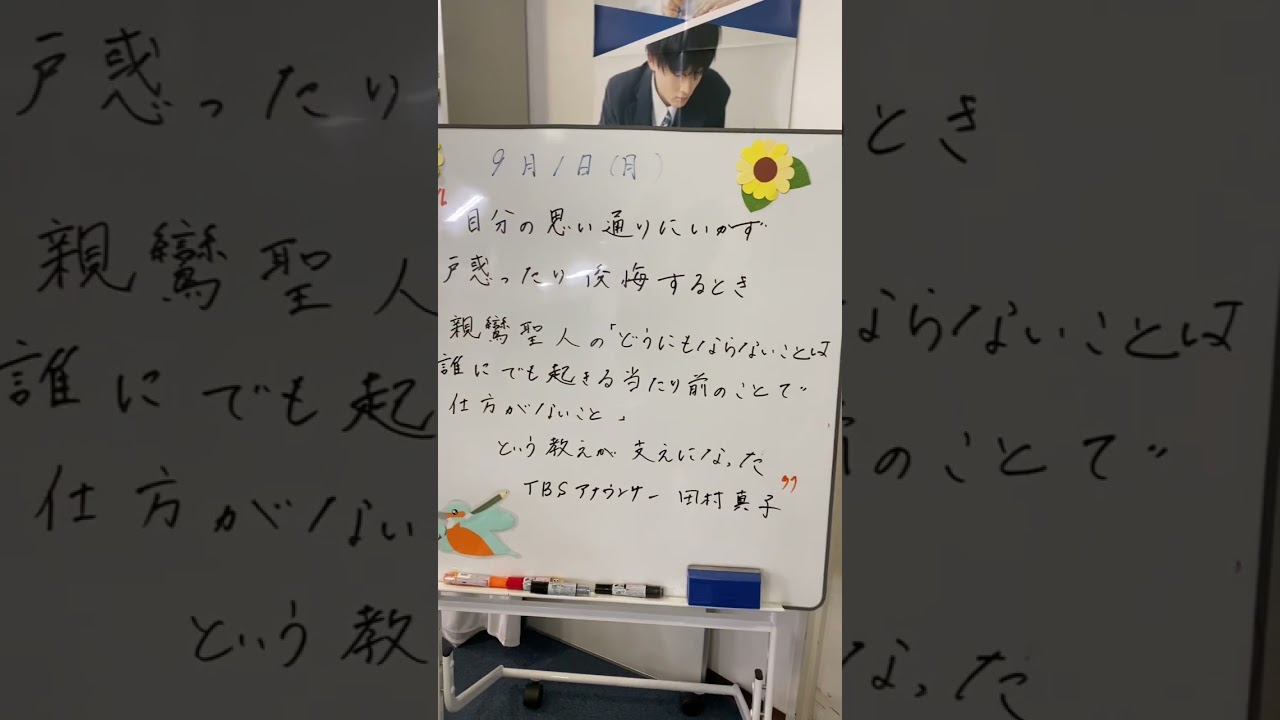 9月1日(月)
自分の思い通りにいかず
戸惑ったり後悔するとき
親鸞聖人の「どうにもならないことは
誰にでも起きる当たり前のことで
仕方がないこと」
という教えが支えになった
TBSアナウンサー 田村真子